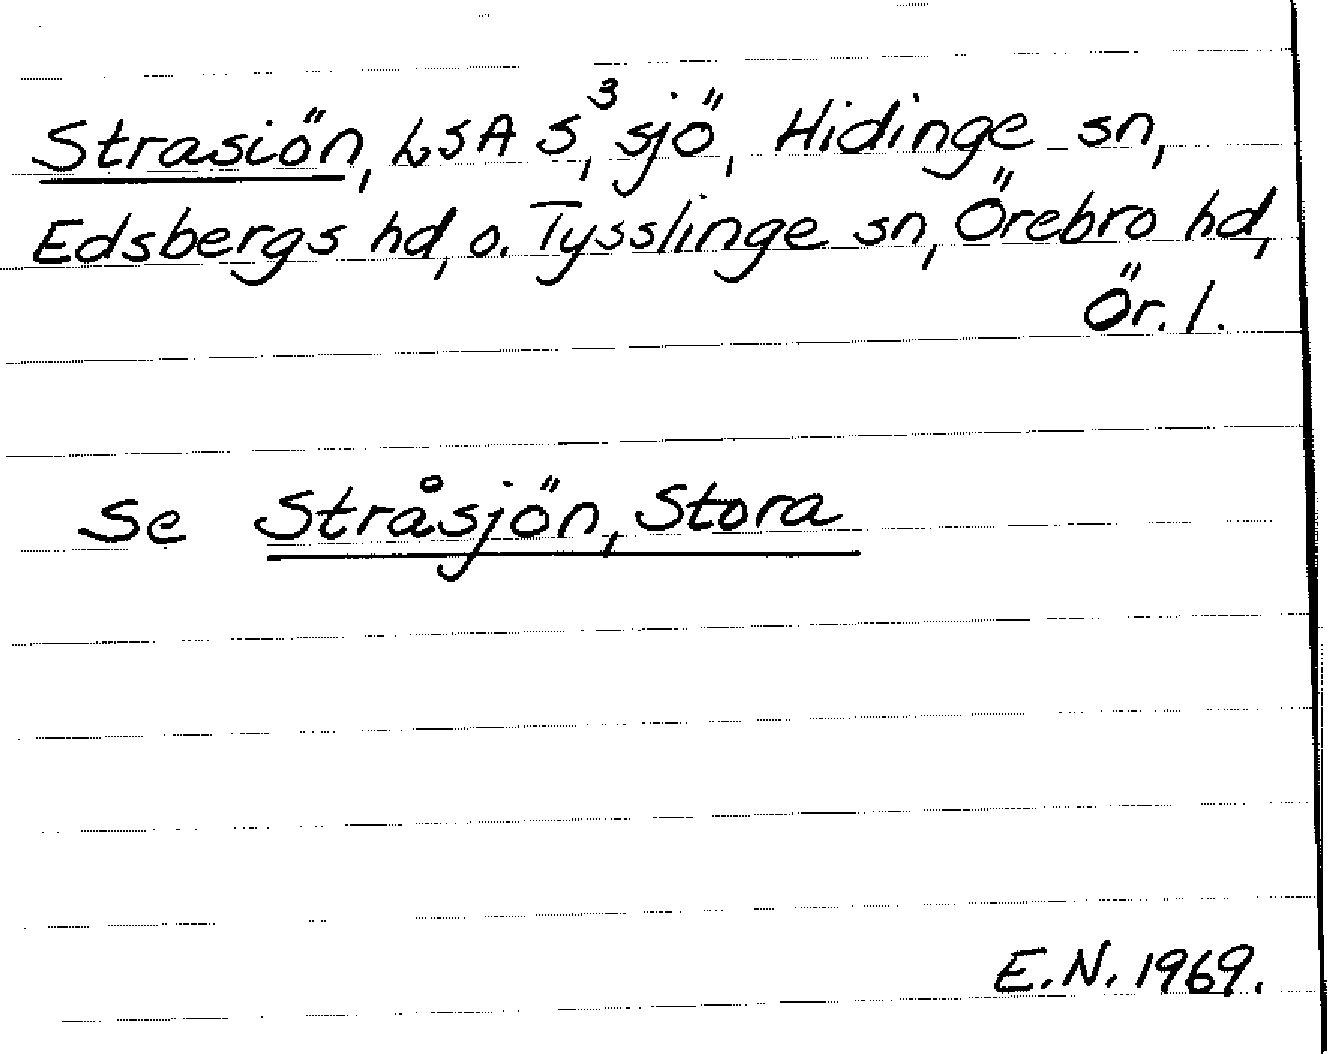 Strasiön, LSA S³, sjö, Hidinge sn,
Edsbergs hd, o. Tysslinge sn, Örebro hd,
Ör. l.
Se Stråsjön, Stora
E.N. 1969.